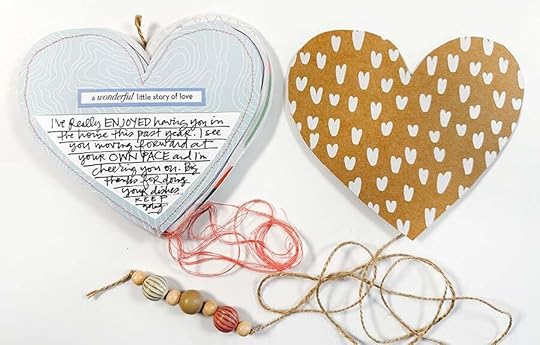 a wonderful little story of love
I've Really ENJOYED having you in
the house this past year. I see
you moving forward at
your OWN PACE and I'm
cheering you on. Big
thanks for doing
your dishes.
KEEP
going